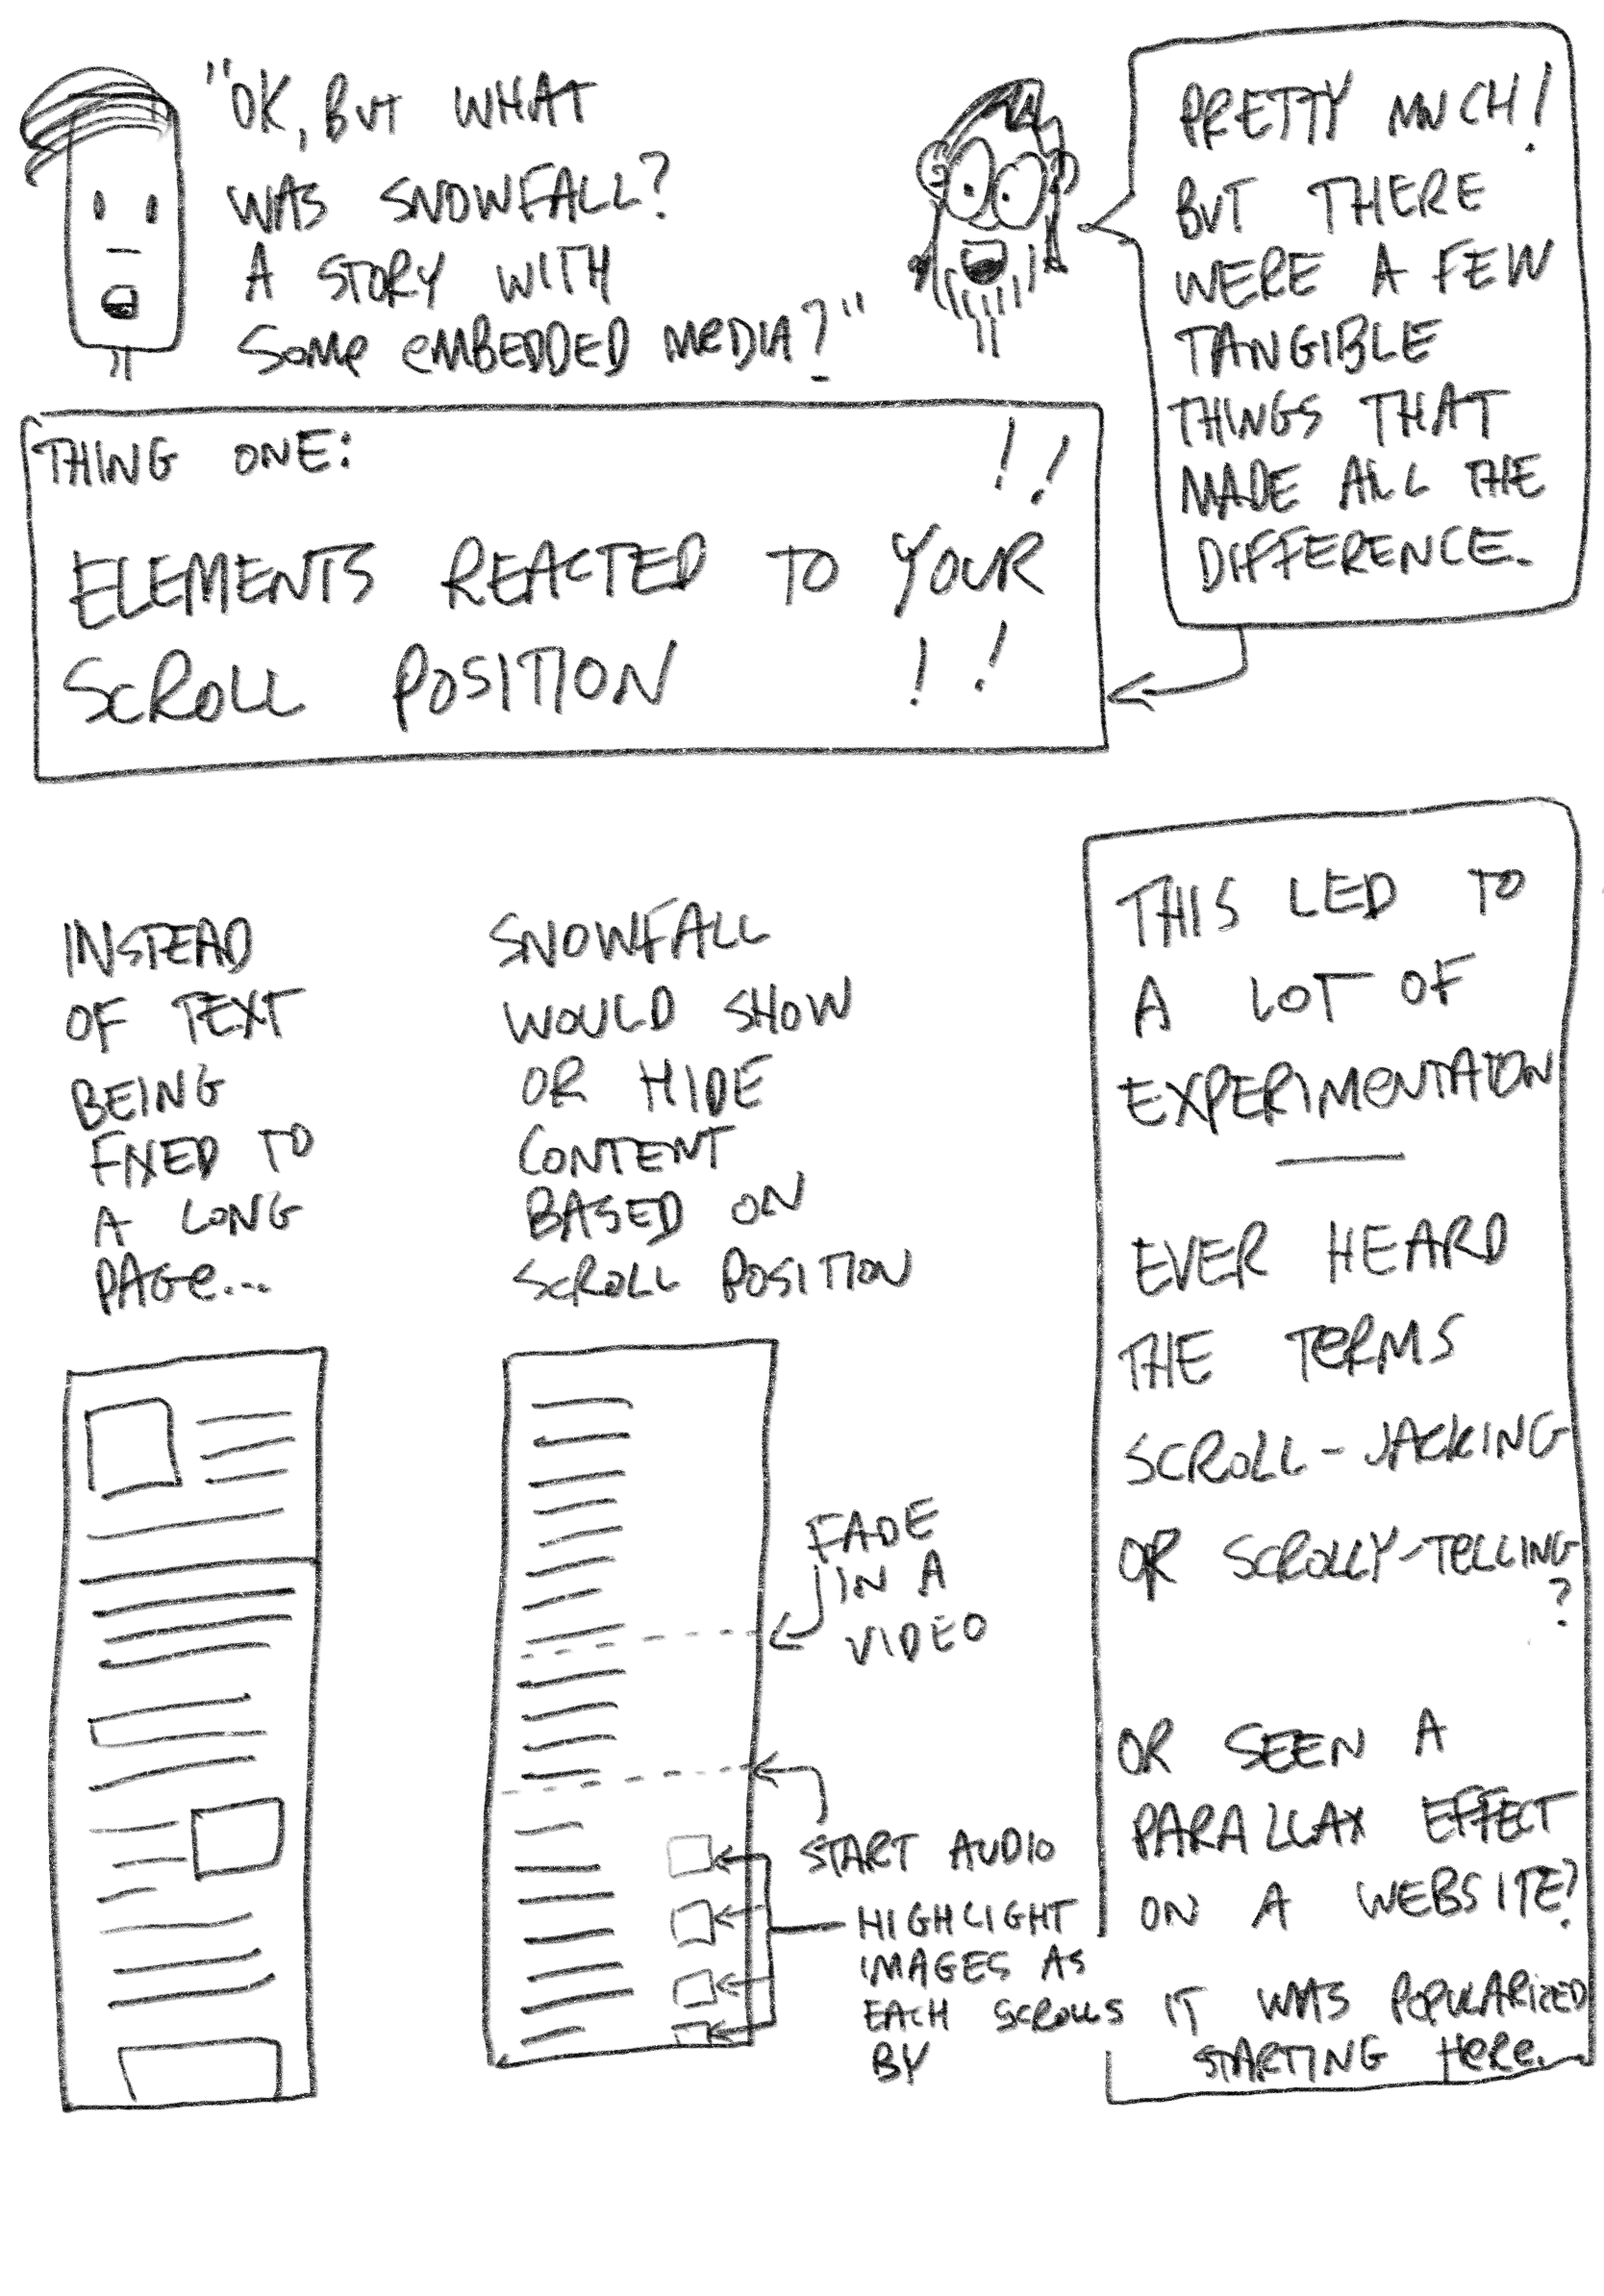 "OK, BUT WHAT
WAS SNOWFALL?
A STORY WITH
SOME EMBEDDED MEDIA?"
PRETTY MUCH!
BUT THERE
WERE A FEW
TANGIBLE
THINGS THAT
MADE ALL THE
DIFFERENCE.
THING ONE: !!
ELEMENTS REACTED TO YOUR
SCROLL POSITION !!
INSTEAD
OF TEXT
BEING
FIXED TO
A LONG
PAGE...
SNOWFALL
WOULD SHOW
OR HIDE
CONTENT
BASED ON
SCROLL POSITION
FADE
IN A
VIDEO
START AUDIO
HIGHLIGHT
IMAGES AS
EACH SCROLLS
BY
THIS LED TO
A LOT OF
EXPERIMENTATION
—
EVER HEARD
THE TERMS
SCROLL-JACKING
OR SCROLLY-TELLING
?
OR SEEN A
PARALLAX EFFECT
ON A WEBSITE?
IT WAS POPULARIZED
STARTING HERE.